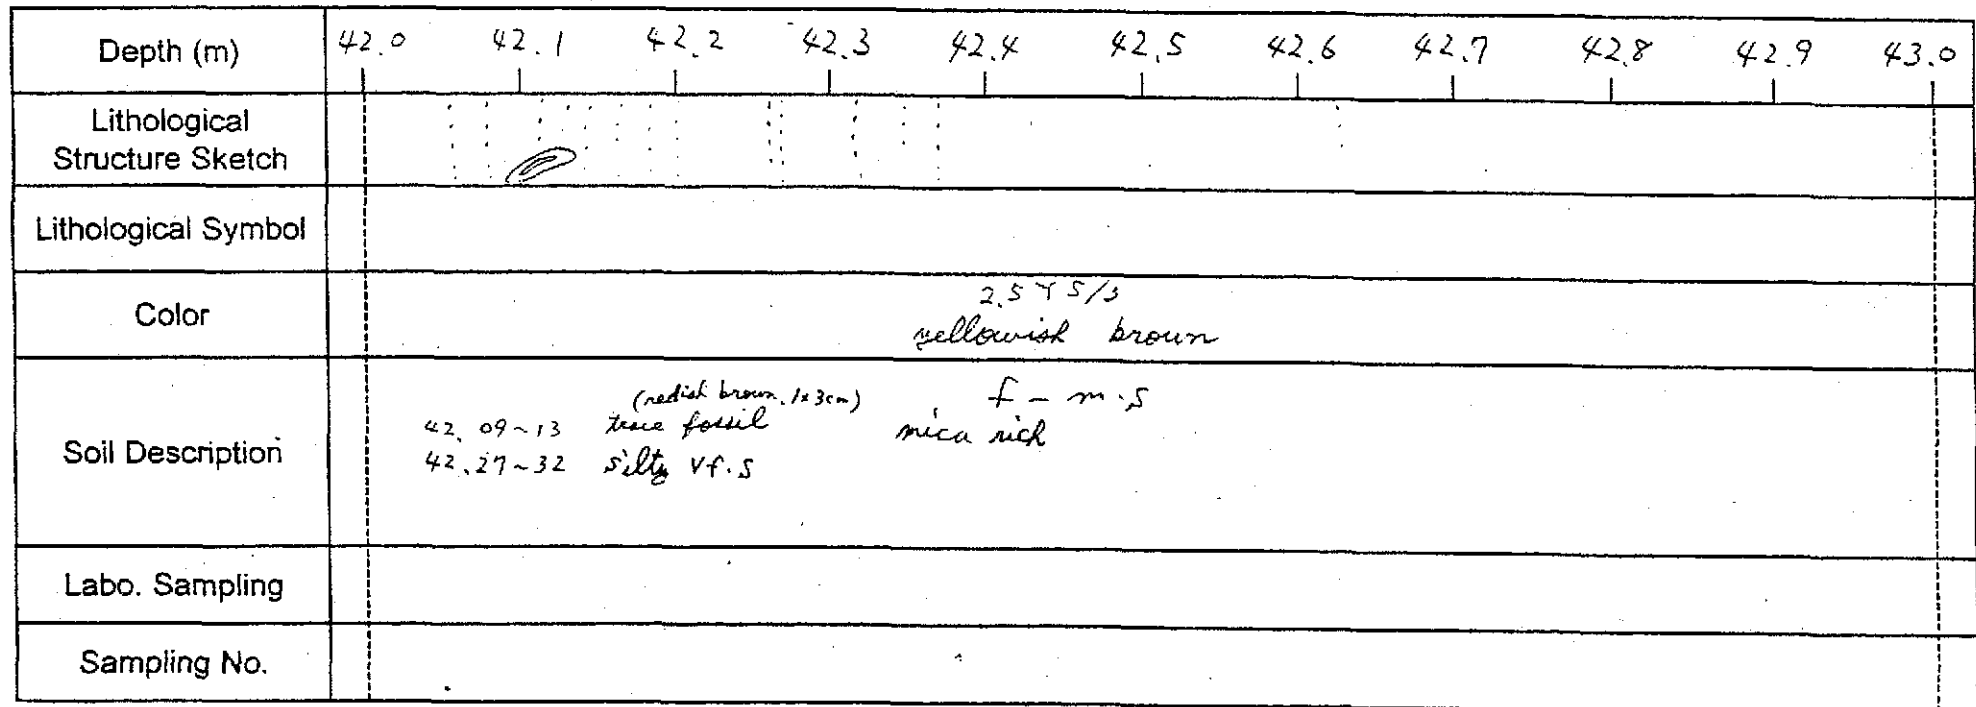 Depth (m) 42.0 42.1 42.2 42.3 42.4 42.5 42.6 42.7 42.8 42.9 43.0
Lithological
Structure Sketch
Lithological Symbol
Color
2.5 Y 5/3
yellowish brown
Soil Description
(redish brown, 1x3cm)
42.09~13 trace fossil
42.27~32 silty vf.s
f - m.s
mica rich
Labo. Sampling
Sampling No.